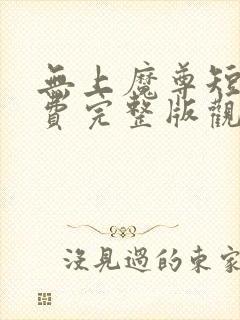 無上魔尊短
費完整版觀
沒見過的東家